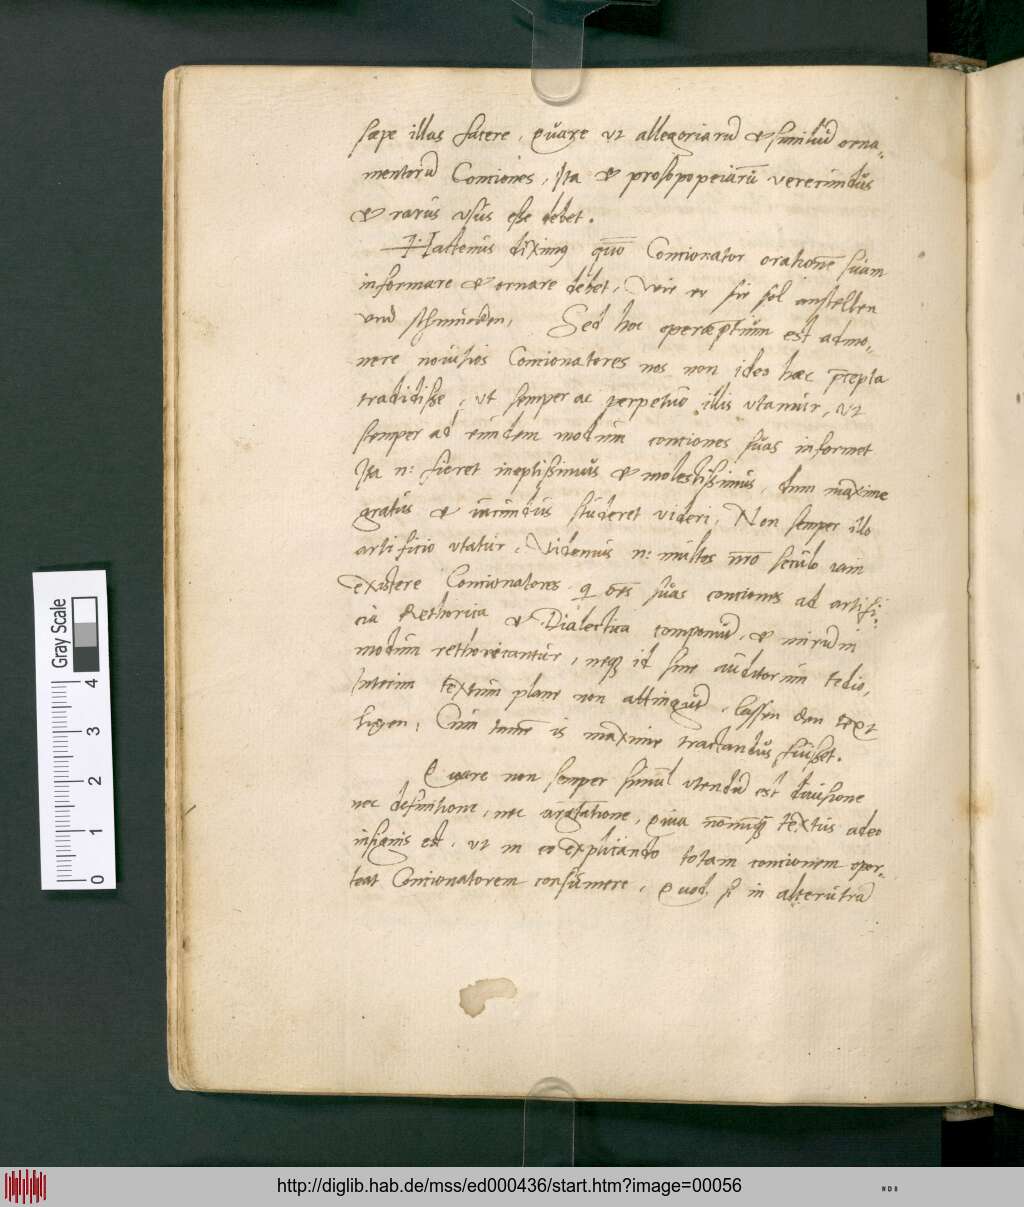 sæpe illas facere, Quare vt allegoriarū & similiū orna-
mentorū Conciones, Ita & prosopopeiarū verecundus
& rarus vsus esse debet.
Hactenus diximus quō Concionator orationē suam
informare & ornare debet, wie er sie sol anstellen
vnd schmucken, Sed hoc operæptium est admo-
nere nouitios Concionatores nos non ideo hæc p̄cepta
tradidisse, vt semper ac perpetuo illis vtamur, vt
semper ad eundem modum conciones suas informet
Ita n: fieret ineptissimus & molestissimus, dum maxime
gratus & iucundus studeret videri, Non semper illo
artificio vtatur, Videmus n: multos nr̄o seculo iam
existere Concionatores q oēs suas conciones ad artifi-
cia Rethorica & Dialectica componūt, & mirum in
modum rethoricantur, neq; id sine auditorum tedio,
Interim textum plane non attingūt, lassen den text
ligen, Cum tamē is maxime tractandus fuisset.
Quare non semper simul vtendū est diuisione,
nec definitione, nec argūtatione, Quia nonnunq̄ textus adeo
insignis est, vt in eo explicando totam concionem opor-
teat Concionatorem consumere, Quod si in alterutrā
Gray Scale
4
3
2
1
0
http://diglib.hab.de/mss/ed000436/start.htm?image=00056